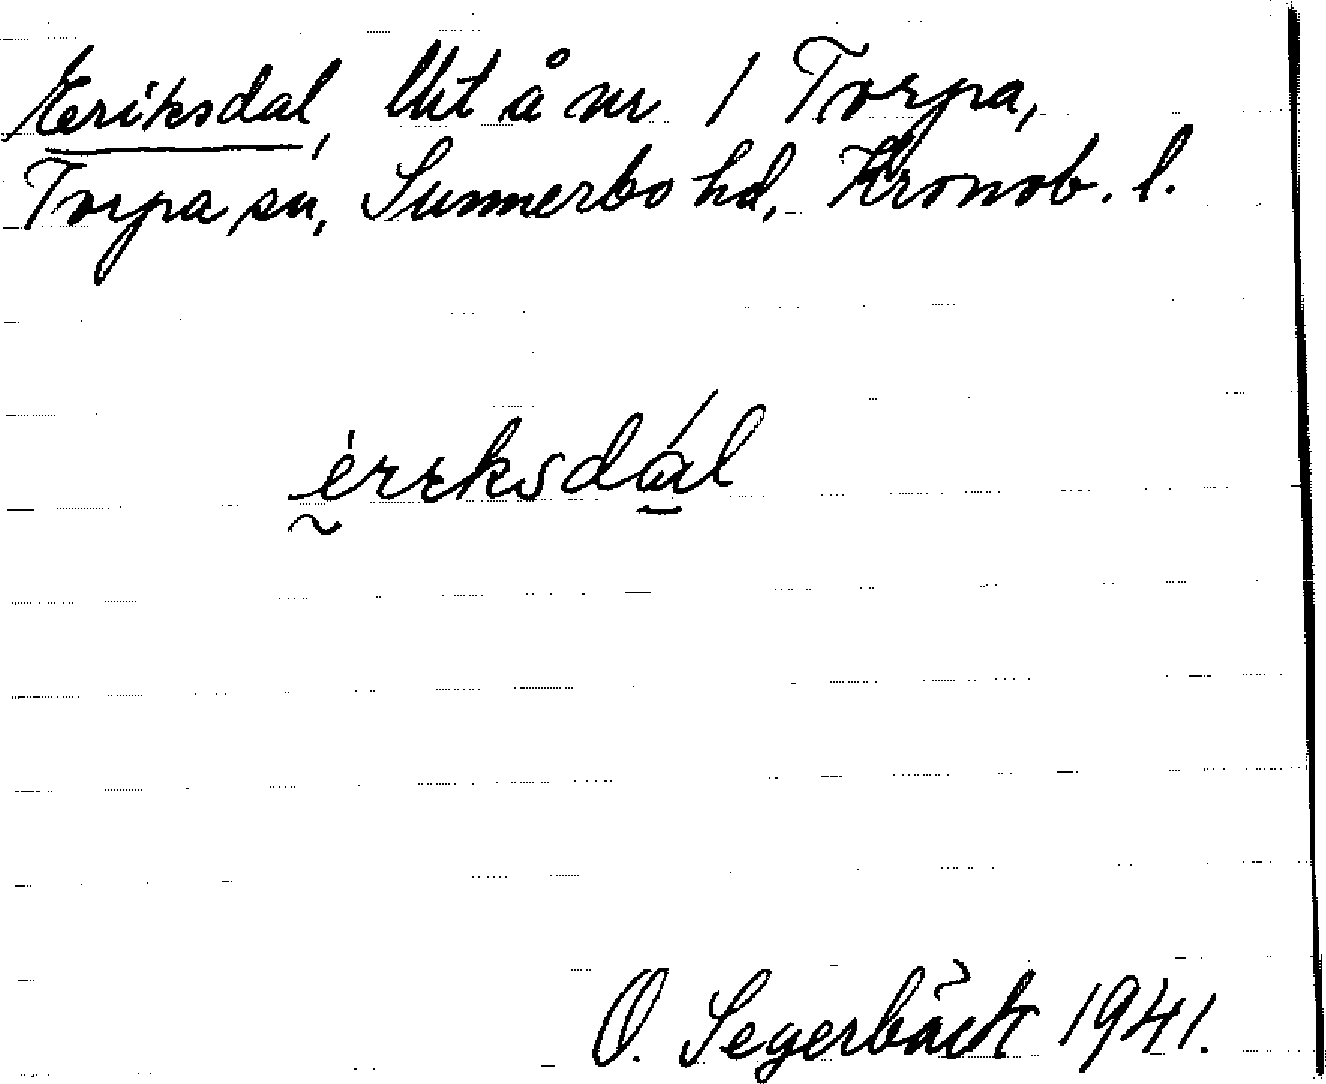 Eriksdal, lht å nr 1 Torpa,
Torpa sn, Sunnerbo hd, Kronob. l.
èrɩksdál
O. Segerbäck 1941.